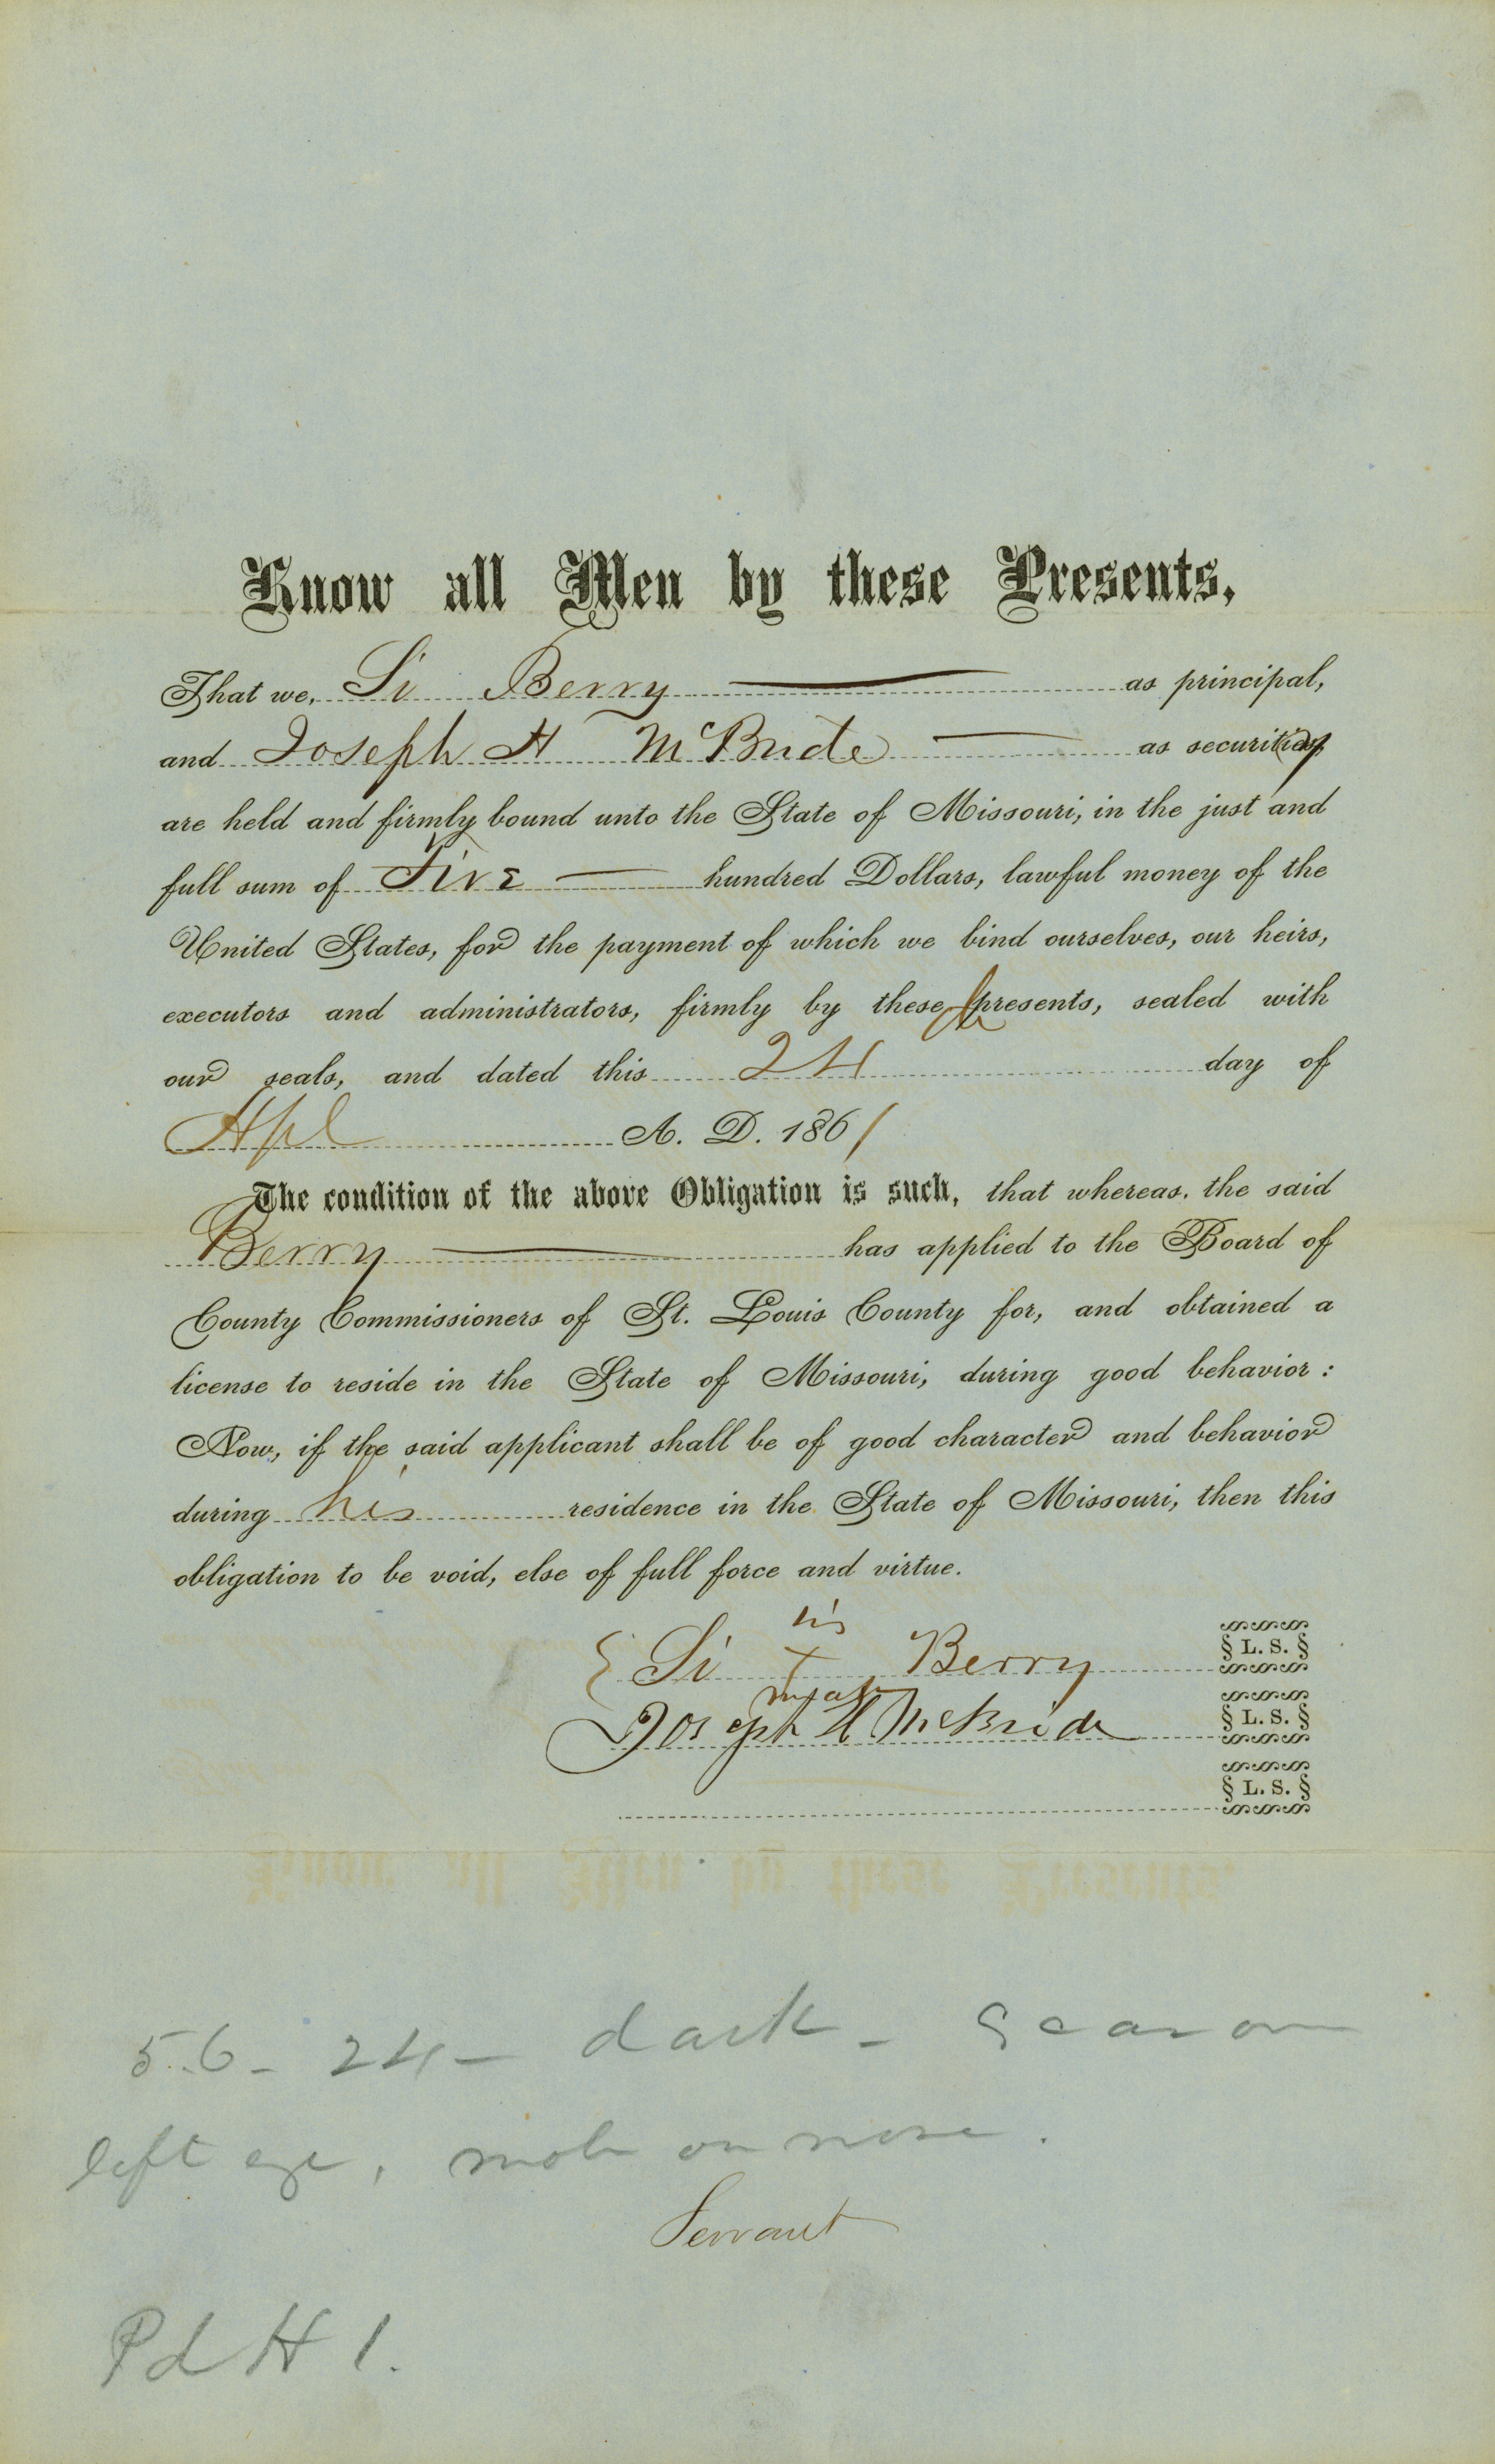 Know all Men by these Presents,
That we, Si Berry as principal,
and Joseph H McBride as security
are held and firmly bound unto the State of Missouri, in the just and
full sum of Five hundred Dollars, lawful money of the
United States, for the payment of which we bind ourselves, our heirs,
executors and administrators, firmly by these presents, sealed with
our seals, and dated this 24 day of
Apl A. D. 1861
The condition of the above Obligation is such, that whereas, the said
Berry has applied to the Board of
County Commissioners of St. Louis County for, and obtained a
license to reside in the State of Missouri, during good behavior:
Now, if the said applicant shall be of good character and behavior
during his residence in the State of Missouri, then this
obligation to be void, else of full force and virtue.
his
Si X Berry L. S.
mark
Joseph H McBride L. S.
L. S.
5.6 - 24 - dark - scar on
left eye, mole on nose.
Servant
Pd H 1.